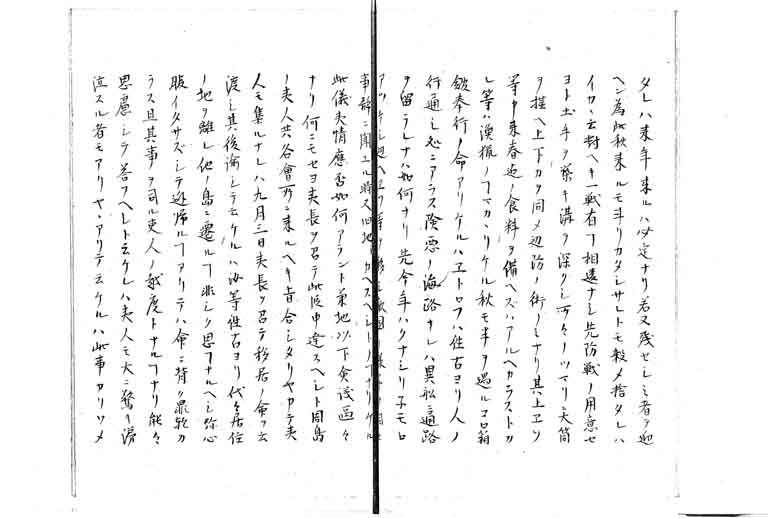 タレハ来年来ルハ必定ナリ若又残セシミ者ヲ迎
ヘン為此秋来ルモ斗リカタシサレトモ殺メ捨タレハ
イカヽ云封ヘキ一戦有ヿ相違ナシ先防戦ノ用意セ
ヨト土手ヲ築キ溝ヲ深クシ所々ノツマリニ大筒
ヲ揘ヘ上下力ヲ同メ辺防ノ術ノミナリ其上ヱソ
等中来春迠ノ食料ヲ備ヘスハアルヘカラストカ
レ等ハ漁猟ノヿニカヽリケル秋モ半ヲ過ルコロ箱
舘奉行ノ命アリケルハヱトロフハ徃古ヨリ人ノ
行通シ処ニアラス険悪ノ海路ナレハ異船通路
ヲ留ラレナハ如何ナリ先今年ハクナシリ子モロ
事静ニ聞エル時又旧地ニカヘスヘシトノヿナリケル
此儀夷情應否如何アラント東地以下僉議區々
ナリ何ニモセヨ夷長ヲ召テ此段申達スヘシト同島
ノ夷人共谷會所ニ来ルヘキ旨合シタリヤカテ夷
人モ集ルナレハ九月三日夷長ヲ召テ移居ノ命ヲ云
渡シ其後諭シテ云ケルハ汝等徃古ヨリ代々居住
ノ地ヲ離レ他ノ島ニ遷ルヿ悲シク思フナルヘシ弥心
服イタサズシテ迯帰ルヿアリテハ命ニ背ク罪軽カ
ラス且其事ヲ司ル吏人ノ越度トナルヿナリ能々
思慮シテ答フヘシト云ケレハ夷人モ大ニ驚キ涕
泣スル者モアリヤヽアリテ云ケルハ此事カリソメ